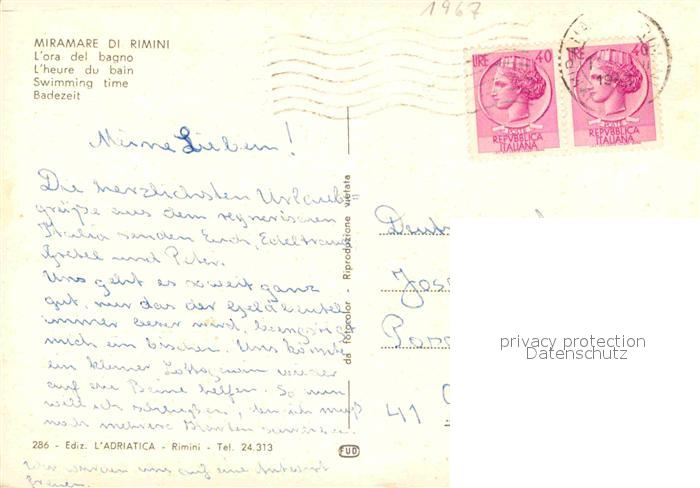 1967
MIRAMARE DI RIMINI
L'ora del bagno
L'heure du bain
Swimming time
Badezeit
LIRE 40
LIRE 40
POSTE
REPVBBLICA
ITALIANA
REPVBBLICA
ITALIANA
Meine Lieben!
Die herzlichsten Urlaubs=
grüße aus dem regnerischen
Italia senden Euch, Edeltraud
Gretel und Peter.
Uns geht es soweit ganz
gut, nur das der Geldbeutel
immer leerer wird, beengstigt
mich ein bischen. Uns könnte
ein kleiner Lottogewinn wieder
auf die Beine helfen. So nun
will ich schließen, den ich muß
noch mehrere Karten schreiben.
Wir würden uns auf eine Antwort
freuen.
da fotocolor - Riproduzione vietata
Jose
41
privacy protection
Datenschutz
286 - Ediz. L'ADRIATICA - Rimini - Tel. 24.313
FUD